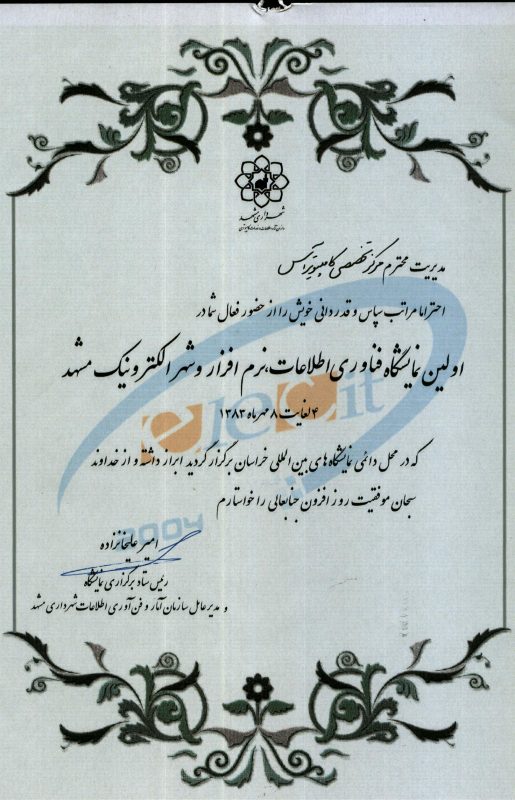 شهرداری مشهد
مدیریت محترم مرکز تخصصی کامپیوتر آتیس
احتراما مراتب سپاس و قدردانی خویش را از حضور فعال شما در
اولین نمایشگاه فناوری اطلاعات، نرم افزار و شهر الکترونیک مشهد
۴ لغایت ۸ مهرماه ۱۳۸۳
elecit
که در محل دائمی نمایشگاه های بین المللی خراسان برگزار گردید ابراز داشته و از خداوند
سبحان موفقیت روز افزون جنابعالی را خواستارم
2004
امیر علیخانزاده
رئیس ستاد برگزاری نمایشگاه
و مدیر عامل سازمان آمار و فن آوری اطلاعات شهرداری مشهد